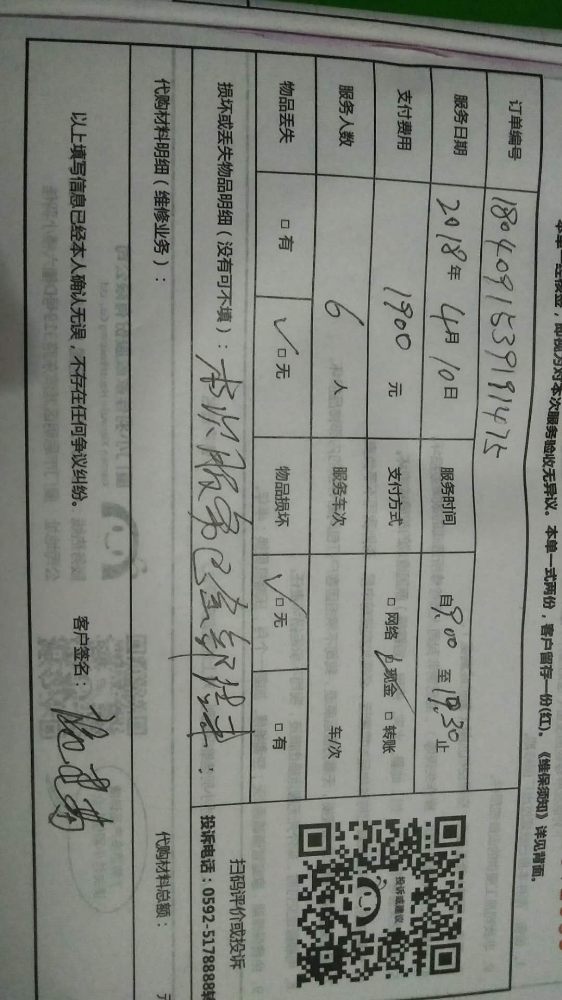 本单一经核查，即视为对本次服务验收无异议。本单一式两份，客户留存一份(红)。《维保须知》详见背面。
订单编号 1804091539191475
服务日期 2018年 4月 10日 服务时间 自9:00 至19:30止
支付费用 1900 元 支付方式 □网络 ☑现金 □转账
服务人数 6 人 服务车次 车/次
物品丢失 □有 ☑无 物品损坏 ☑无 □有
投诉或建议
损坏或丢失物品明细（没有可不填）：本次服务已全部结束
扫码评价或投诉
投诉电话：0592-5178888转
代购材料明细（维修业务）： 代购材料总额：
以上填写信息已经本人确认无误，不存在任何争议纠纷。 客户签名：